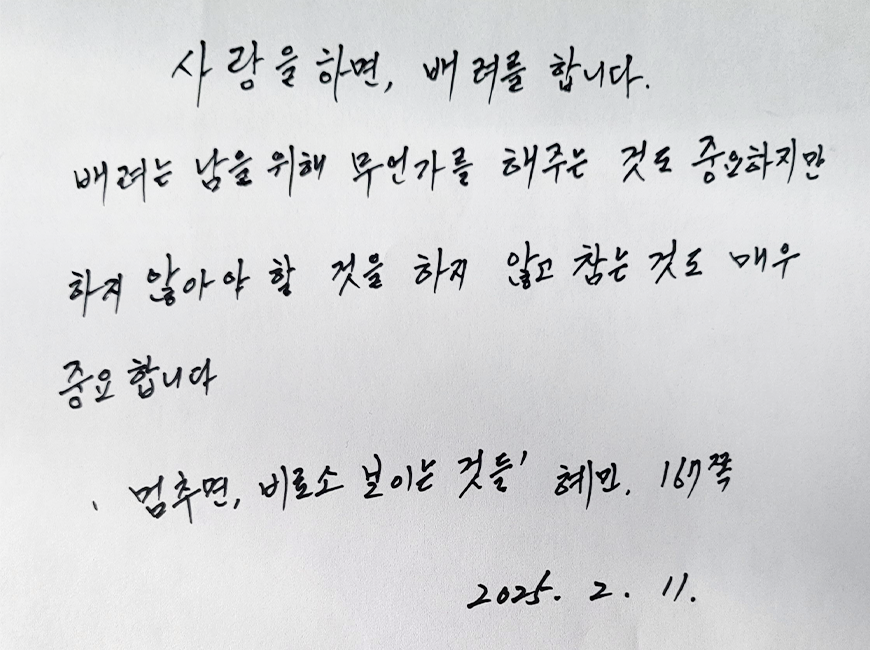 사랑을 하면, 배려를 합니다.
배려는 남을 위해 무언가를 해주는 것도 중요하지만
하지 않아야 할 것을 하지 않고 참는 것도 매우
중요합니다
' 멈추면, 비로소 보이는 것들' 혜민. 167쪽
2025. 2. 11.